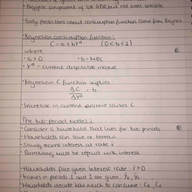 • Biggest component of GDP, but not most volatile
• Early predictions about consumption function came from Keynes
Keynesian consumption function:
C = a + bYᵈ (0<b<1)
where
• a > 0 • b = MPC
• Yᵈ = current disposable income
Keynesian C function implies
ΔC = b
ΔYᵈ
• Increase in current income raises C
The two-period model:
• Consider a household that lives for two periods
• Households can save or borrow
• Saving earns interest at rate r
• Borrowing must be repaid with interest
• Households face given interest rate r > 0
• Incomes in periods 1 and 2 are given, Y₁, Y₂
• Households decide how much to consume: C₁, C₂